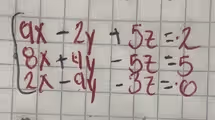 9x - 2y + 5z = 2
8x + 4y - 5z = 5
2x - 9y - 3z = 0